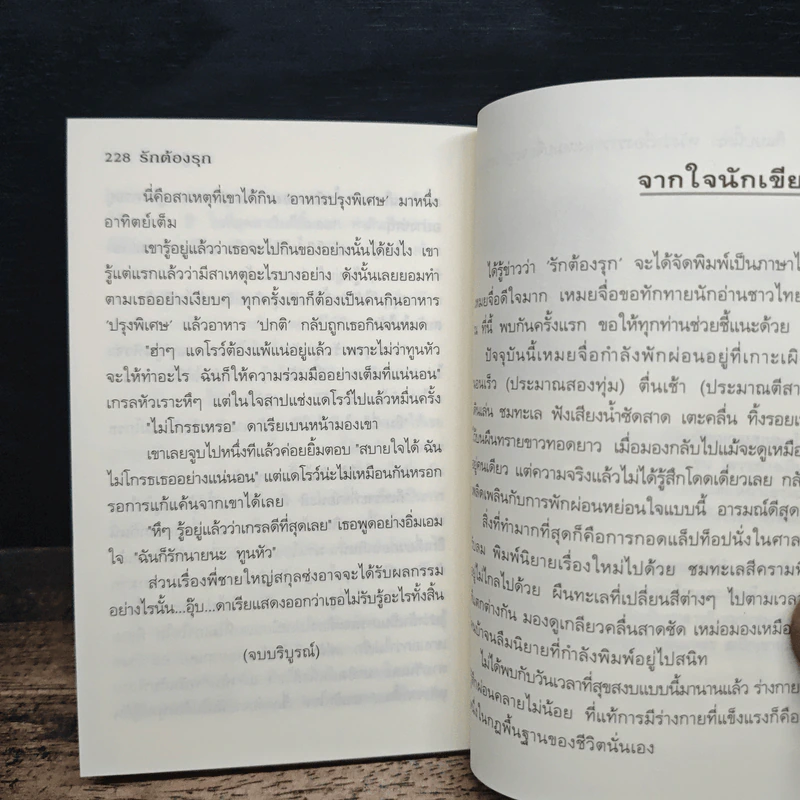 228 รักต้องรุก
นี่คือสาเหตุที่เขาได้กิน 'อาหารปรุงพิเศษ' มาหนึ่ง
อาทิตย์เต็ม
เขารู้อยู่แล้วว่าเธอจะไปกินของอย่างนั้นได้ยังไง เขา
รู้แต่แรกแล้วว่ามีสาเหตุอะไรบางอย่าง ดังนั้นเลยยอมทำ
ตามเธออย่างเงียบๆ ทุกครั้งเขาก็ต้องเป็นคนกินอาหาร
'ปรุงพิเศษ' แล้วอาหาร 'ปกติ' กลับถูกเธอกินจนหมด
"ฮ่าๆ แดโรว์ต้องแพ้แน่อยู่แล้ว เพราะไม่ว่าทูนหัว
จะให้ทำอะไร ฉันก็ให้ความร่วมมืออย่างเต็มที่แน่นอน"
เกรลหัวเราะหึๆ แต่ในใจสาปแช่งแดโรว์ไปแล้วหมื่นครั้ง
"ไม่โกรธเหรอ" ดาเรียเบนหน้ามองเขา
เขาเลยจูบไปหนึ่งทีแล้วค่อยยิ้มตอบ "สบายใจได้ ฉัน
ไม่โกรธเธออย่างแน่นอน" แต่แดโรว์น่ะไม่เหมือนกันหรอก
รอการแก้แค้นจากเขาได้เลย
"หึๆ รู้อยู่แล้วว่าเกรลดีที่สุดเลย" เธอพูดอย่างอิ่มเอม
ใจ "ฉันก็รักนายนะ ทูนหัว"
ส่วนเรื่องพี่ชายใหญ่สกุลซ่งอาจจะได้รับผลกรรม
อย่างไรนั้น...อุ๊บ...ดาเรียแสดงออกว่าเธอไม่รับรู้อะไรทั้งสิ้น
(จบบริบูรณ์)
จากใจนักเขีย
ได้รู้ข่าวว่า 'รักต้องรุก' จะได้จัดพิมพ์เป็นภาษาไ
เหมยจื่อดีใจมาก เหมยจื่อขอทักทายนักอ่านชาวไทย
ที่นี้ พบกันครั้งแรก ขอให้ทุกท่านช่วยชี้แนะด้วย
ปัจจุบันนี้เหมยจื่อกำลังพักผ่อนอยู่ที่เกาะเผิง
นอนเร็ว (ประมาณสองทุ่ม) ตื่นเช้า (ประมาณตีสา
เดินเล่น ชมทะเล ฟังเสียงน้ำซัดสาด เตะคลื่น ทิ้งรอยเ
บนผืนทรายขาวทอดยาว เมื่อมองกลับไปแม้จะดูเหมือ
อยู่คนเดียว แต่ความจริงแล้วไม่ได้รู้สึกโดดเดี่ยวเลย กลั
เพลิดเพลินกับการพักผ่อนหย่อนใจแบบนี้ อารมณ์ดีสุด
สิ่งที่ทำมากที่สุดก็คือการกอดแล็ปท็อปนั่งในศาล
รับลม พิมพ์นิยายเรื่องใหม่ไปด้วย ชมทะเลสีครามที่
อยู่ไม่ไกลไปด้วย ผืนทะเลที่เปลี่ยนสีต่างๆ ไปตามเวลา
ที่แตกต่างกัน มองดูเกลียวคลื่นสาดซัด เหม่อมองเหมือ
จนลืมนิยายที่กำลังพิมพ์อยู่ไปสนิท
ไม่ได้พบกับวันเวลาที่สุขสงบแบบนี้มานานแล้ว ร่างกาย
ผ่อนคลายไม่น้อย ที่แท้การมีร่างกายที่แข็งแรงก็คือ
หนึ่งในกฎพื้นฐานของชีวิตนั่นเอง